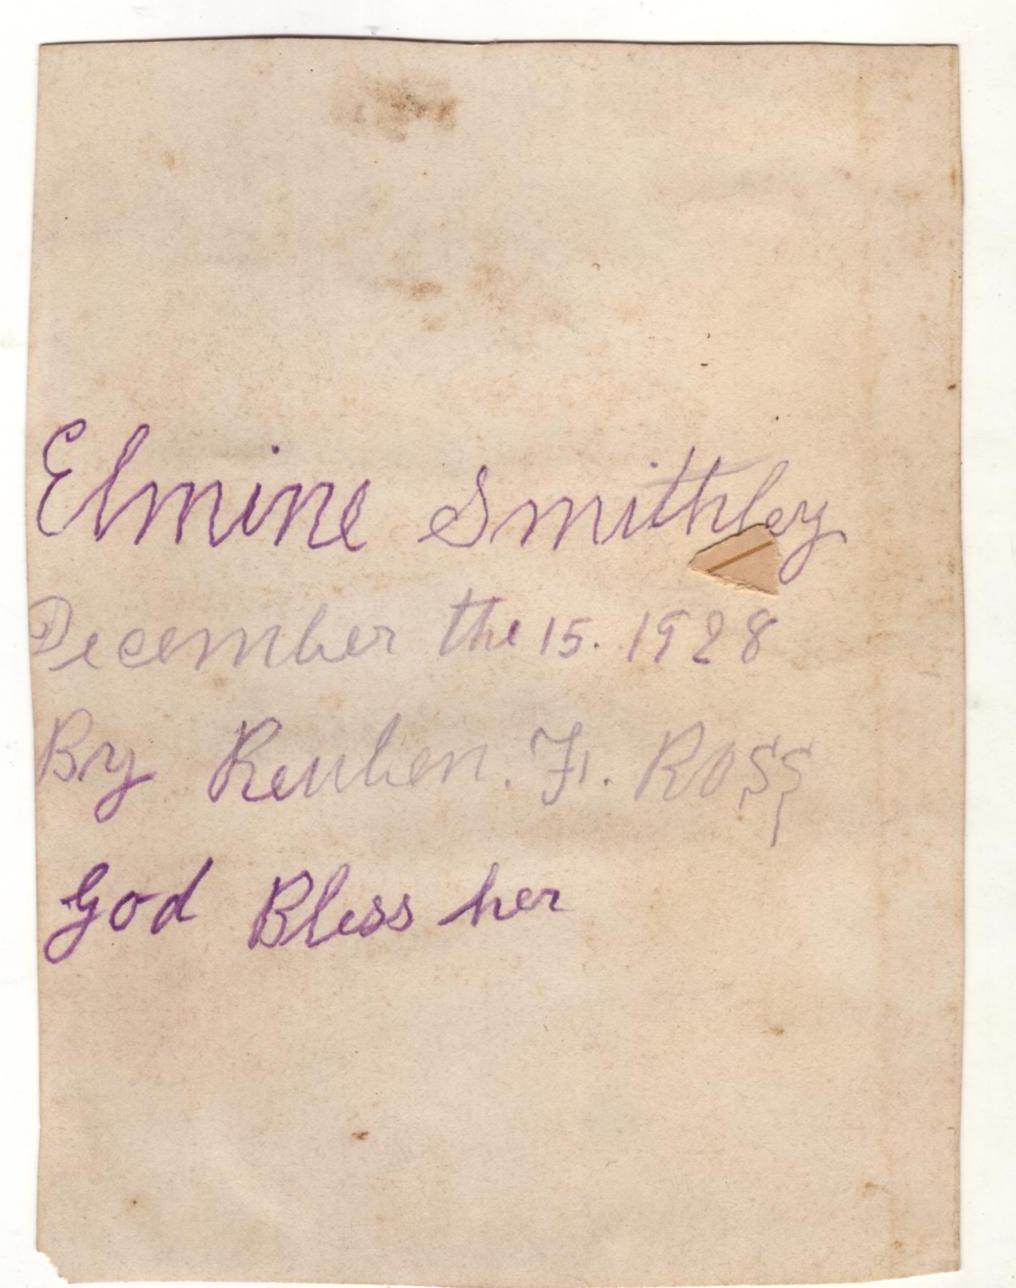 Elmine Smithley
December the 15. 1928
By Reuben. F. Ross
God Bless her